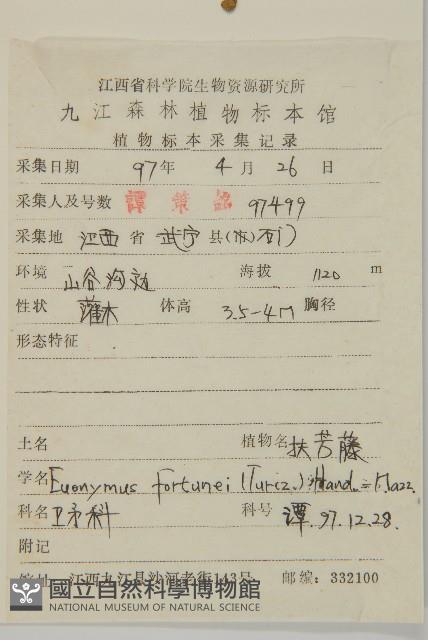 江西省科学院生物资源研究所
九江森林植物标本馆
植物标本采集记录
采集日期 97年 4月 26日
采集人及号数 譚策銘 97499
采集地 江西省 武宁县(市)石门
环境 山谷沟边 海拔 1120 m
性状 灌木 体高 3.5-4M 胸径
形态特征
土名 植物名 扶芳藤
学名 Euonymus fortunei (Turcz.) Hand.-Mazz.
科名 卫矛科 科号 譚.97.12.28.
附记
馆址 江西九江县沙河老街143号 邮编:332100
國立自然科學博物館
NATIONAL MUSEUM OF NATURAL SCIENCE